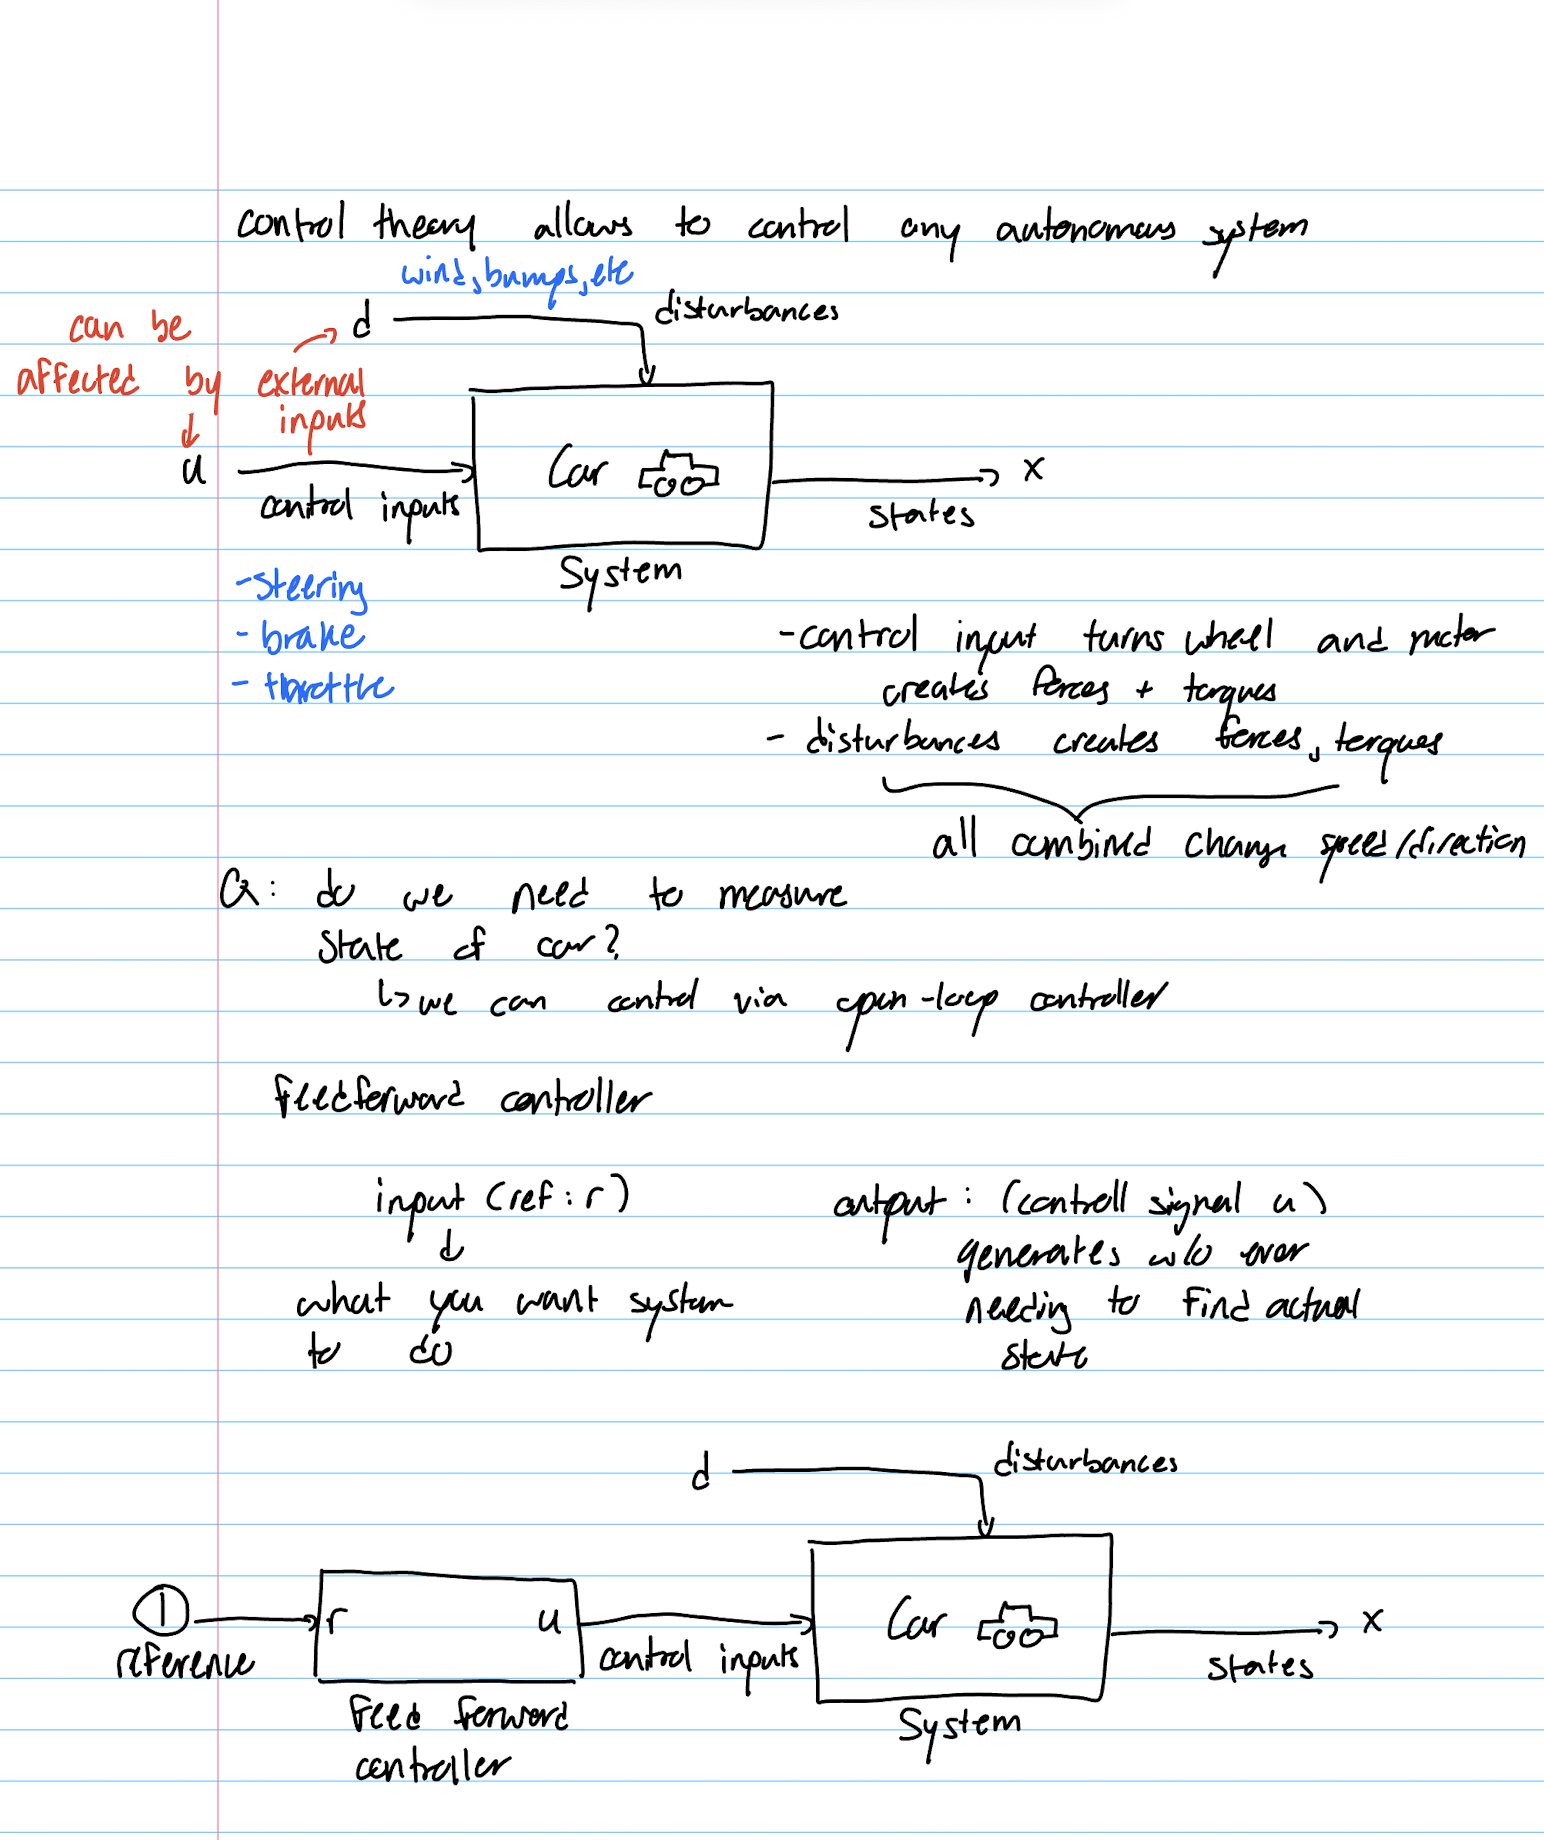 control theory allows to control any autonomous system
wind, bumps, etc
d
disturbances
can be
affected by external
inputs
u
Car
x
control inputs
states
System
-steering
- brake
- throttle
-control input turns wheel and motor
creates forces + torques
- disturbances creates forces, torques
all combined change speed/direction
Q: do we need to measure
state of car?
↳ we can control via open-loop controller
feedforward controller
input (ref: r)
what you want system
to do
output: (controll signal u)
generates w/o ever
needing to find actual
state
d
disturbances
1
r
u
Car
x
reference
control inputs
states
feed forward
controller
System